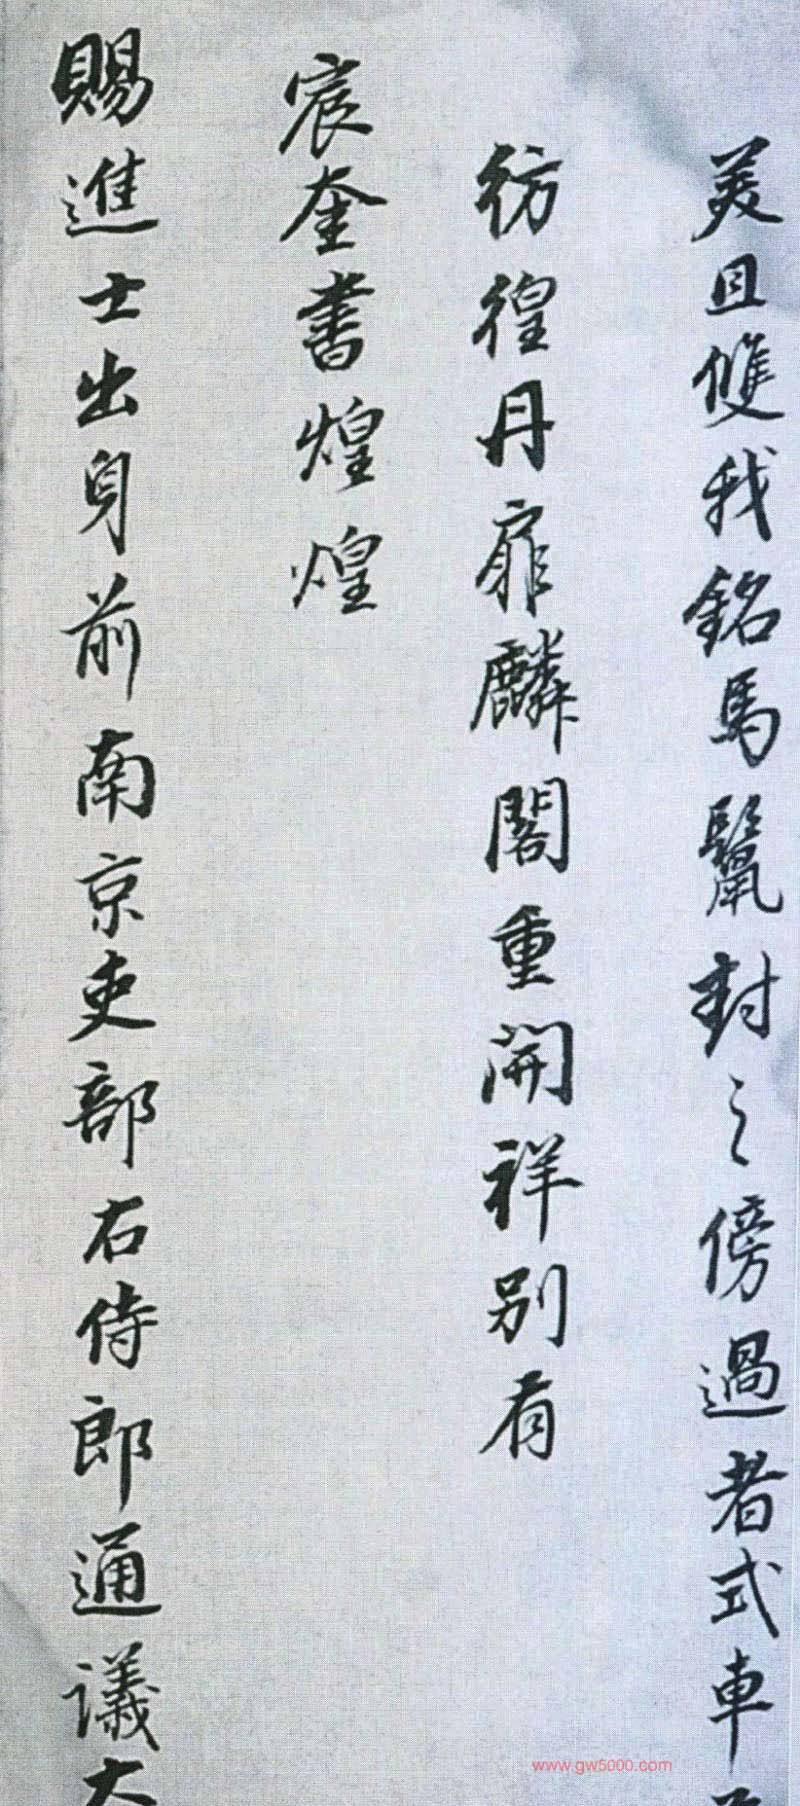 美且雙我銘馬鬣封之傍過者式車
彷徨丹扉麟閣重開祥別有
宸奎書煌煌
賜進士出身前南京吏部右侍郎通議大
www.gw5000.com